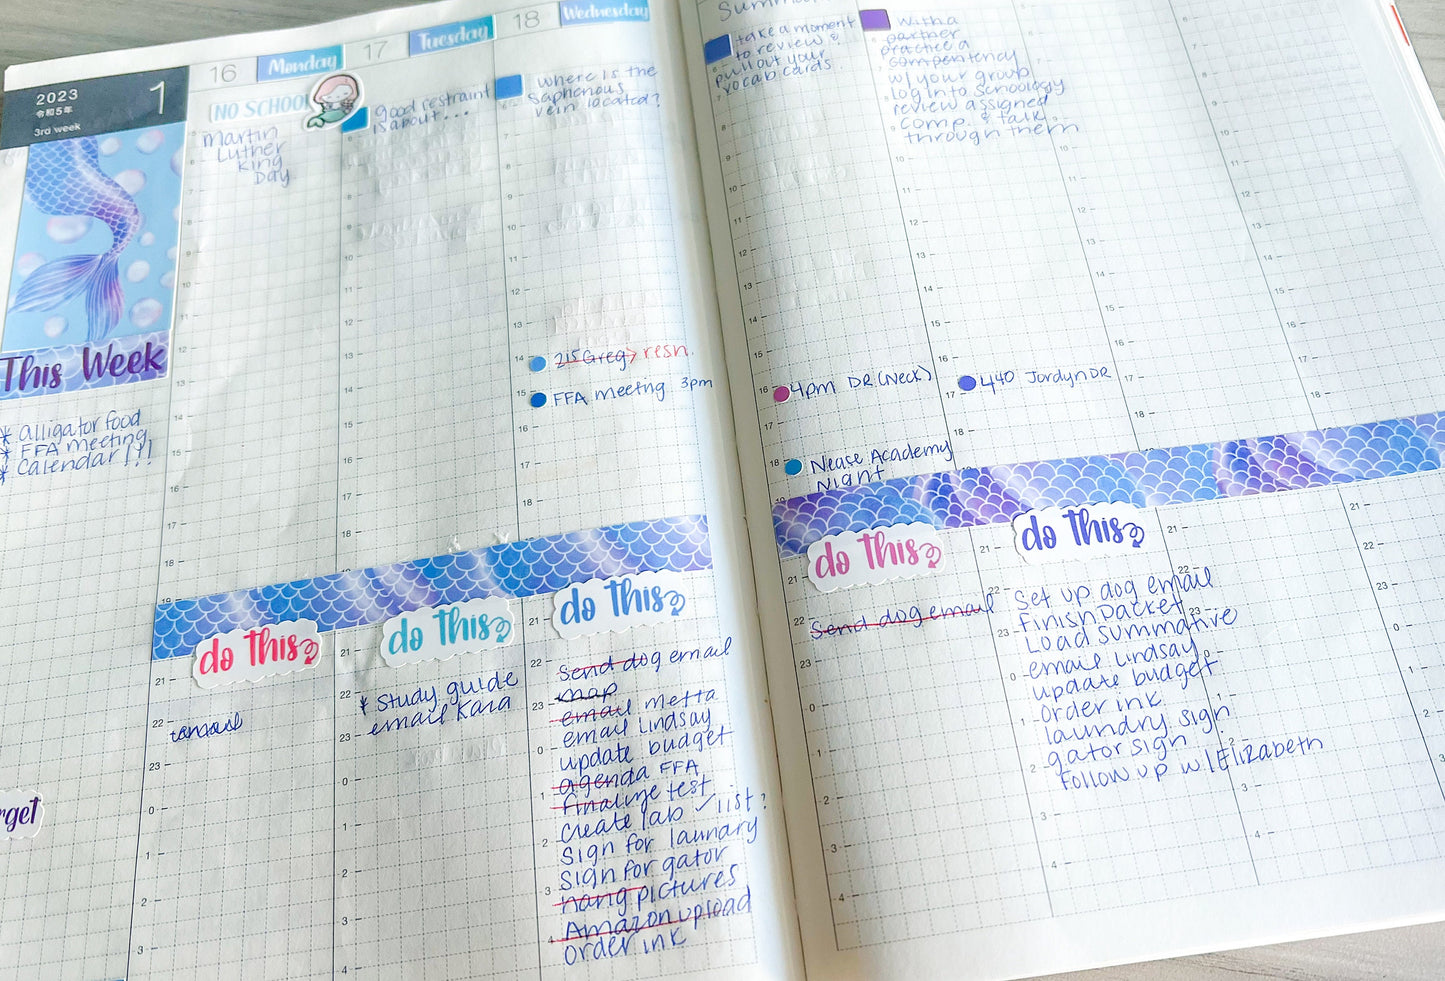 2023
1
令和5年
3rd week
This Week
* Alligator food
* FFA meeting
* Calendar!!!
rget
16 Monday
NO SCHOOL
Martin
Luther
King
Day
do this
17 Tuesday
Good restraint
is about...
do this
* Study guide
email Kara
18 Wednesday
Where is the
Saphenous
vein located?
215 Greg > resh.
FFA meeting 3pm
do this
Send dog email
map
email metta
email Lindsay
update budget
agenda FFA
Finalize test
Create lab ✓list?
Sign for laundry
Sign for gator
hang pictures
Amazon upload
order ink
take a moment
to review &
pull out your
vocab cards.
4pm DR (Neck)
Nease Academy
Night
do this
Send dog email
With a
partner
practice a
competency
w/ your group
log into Schoology
review assigned
comp. & talk
through them
440 Jordyn DR
do this
Set up dog email
Finish packet
Load Summative
email Lindsay
update budget
order ink
laundry sign
gator sign
Follow up w/ Elizabeth